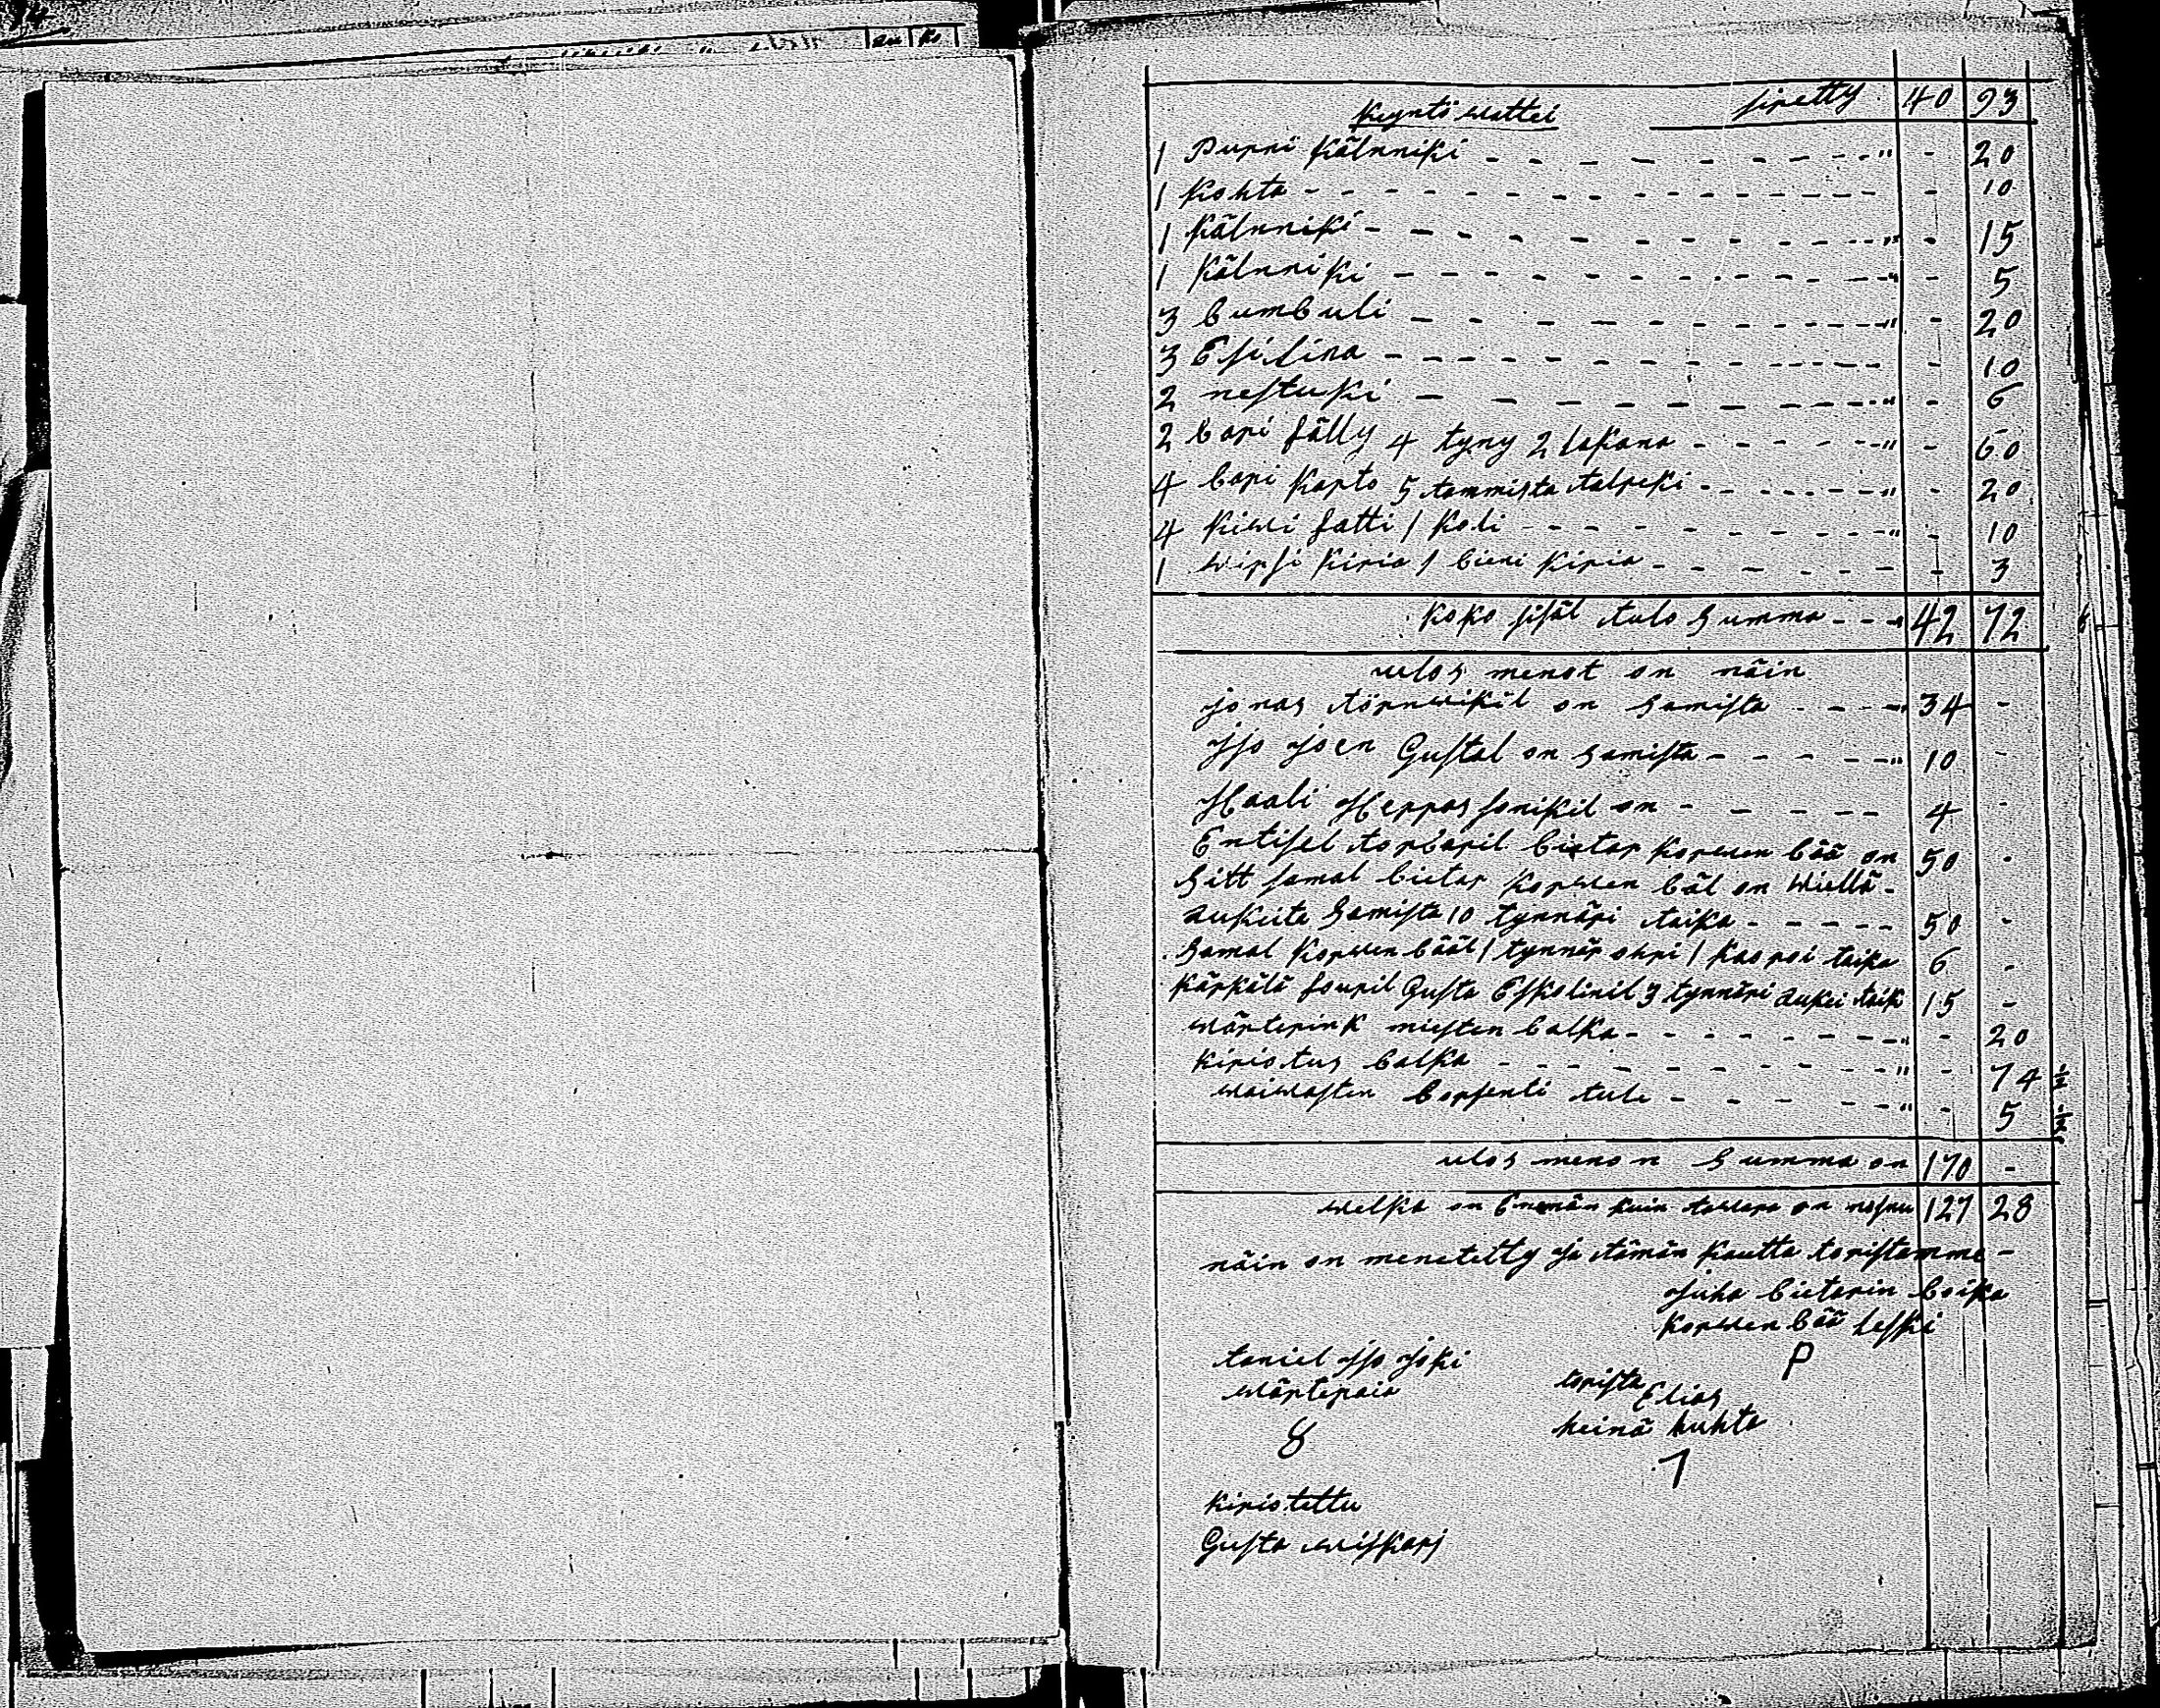 siretty 40 93
Keyntö wattei
1 Purri Kälnniki - - - " - 20
1 Kohta - - - - 10
1 Kälnniki - - - " - 15
1 Kälnniki - - - " - 5
3 bumbuli - - - " - 20
3 Esilina - - - - 10
2 nestuki - - - " - 6
2 bari fälly 4 tyny 2 lakana - - - " - 60
4 bari Karto 5 tammista talreki - - - " - 20
4 Kiwi fatti 1 Koli - - - " - 10
1 wirsi Kiria 1 bieni Kiria - - - - 3
Koko sisäl tulo Summa - - - " 42 72
ulos menot on näin
Jonas törnwikil on Samista - - - " 34 -
Iso Joen Gustal on Samista - - - " 10 -
Haali Herras sonikil on - - - 4 -
Entisel torbaril bietar Korwen bää on 50 -
Sitt samal bietar Korwen bäl on Wiellä -
Rukeita Samista 10 tynnäri taika - - - 50 -
Samal Korwen bääl 1 tynnär ohri 1 Kaorsi taika 6 -
Kärkälä fouril Gusta Eskolinil 3 tynnäri Rukei taik 15 -
wärterink miesten balka - - - " - 20
Kiriotus balka - - - " - 74 ½
waiwasten borsenti tule - - - " - 5 ½
ulos menon Summa on 170 -
welka on Enemän kuin tawara on 127 28
näin on menetetty ja tämän Kautta toristamme -
Juha bietarin boika
Korwen bää leski
P
taniel Iso Joki
wärteraia
8
torista Elias
heinä huhta
1
Kiriotettu
Gusta wiskari